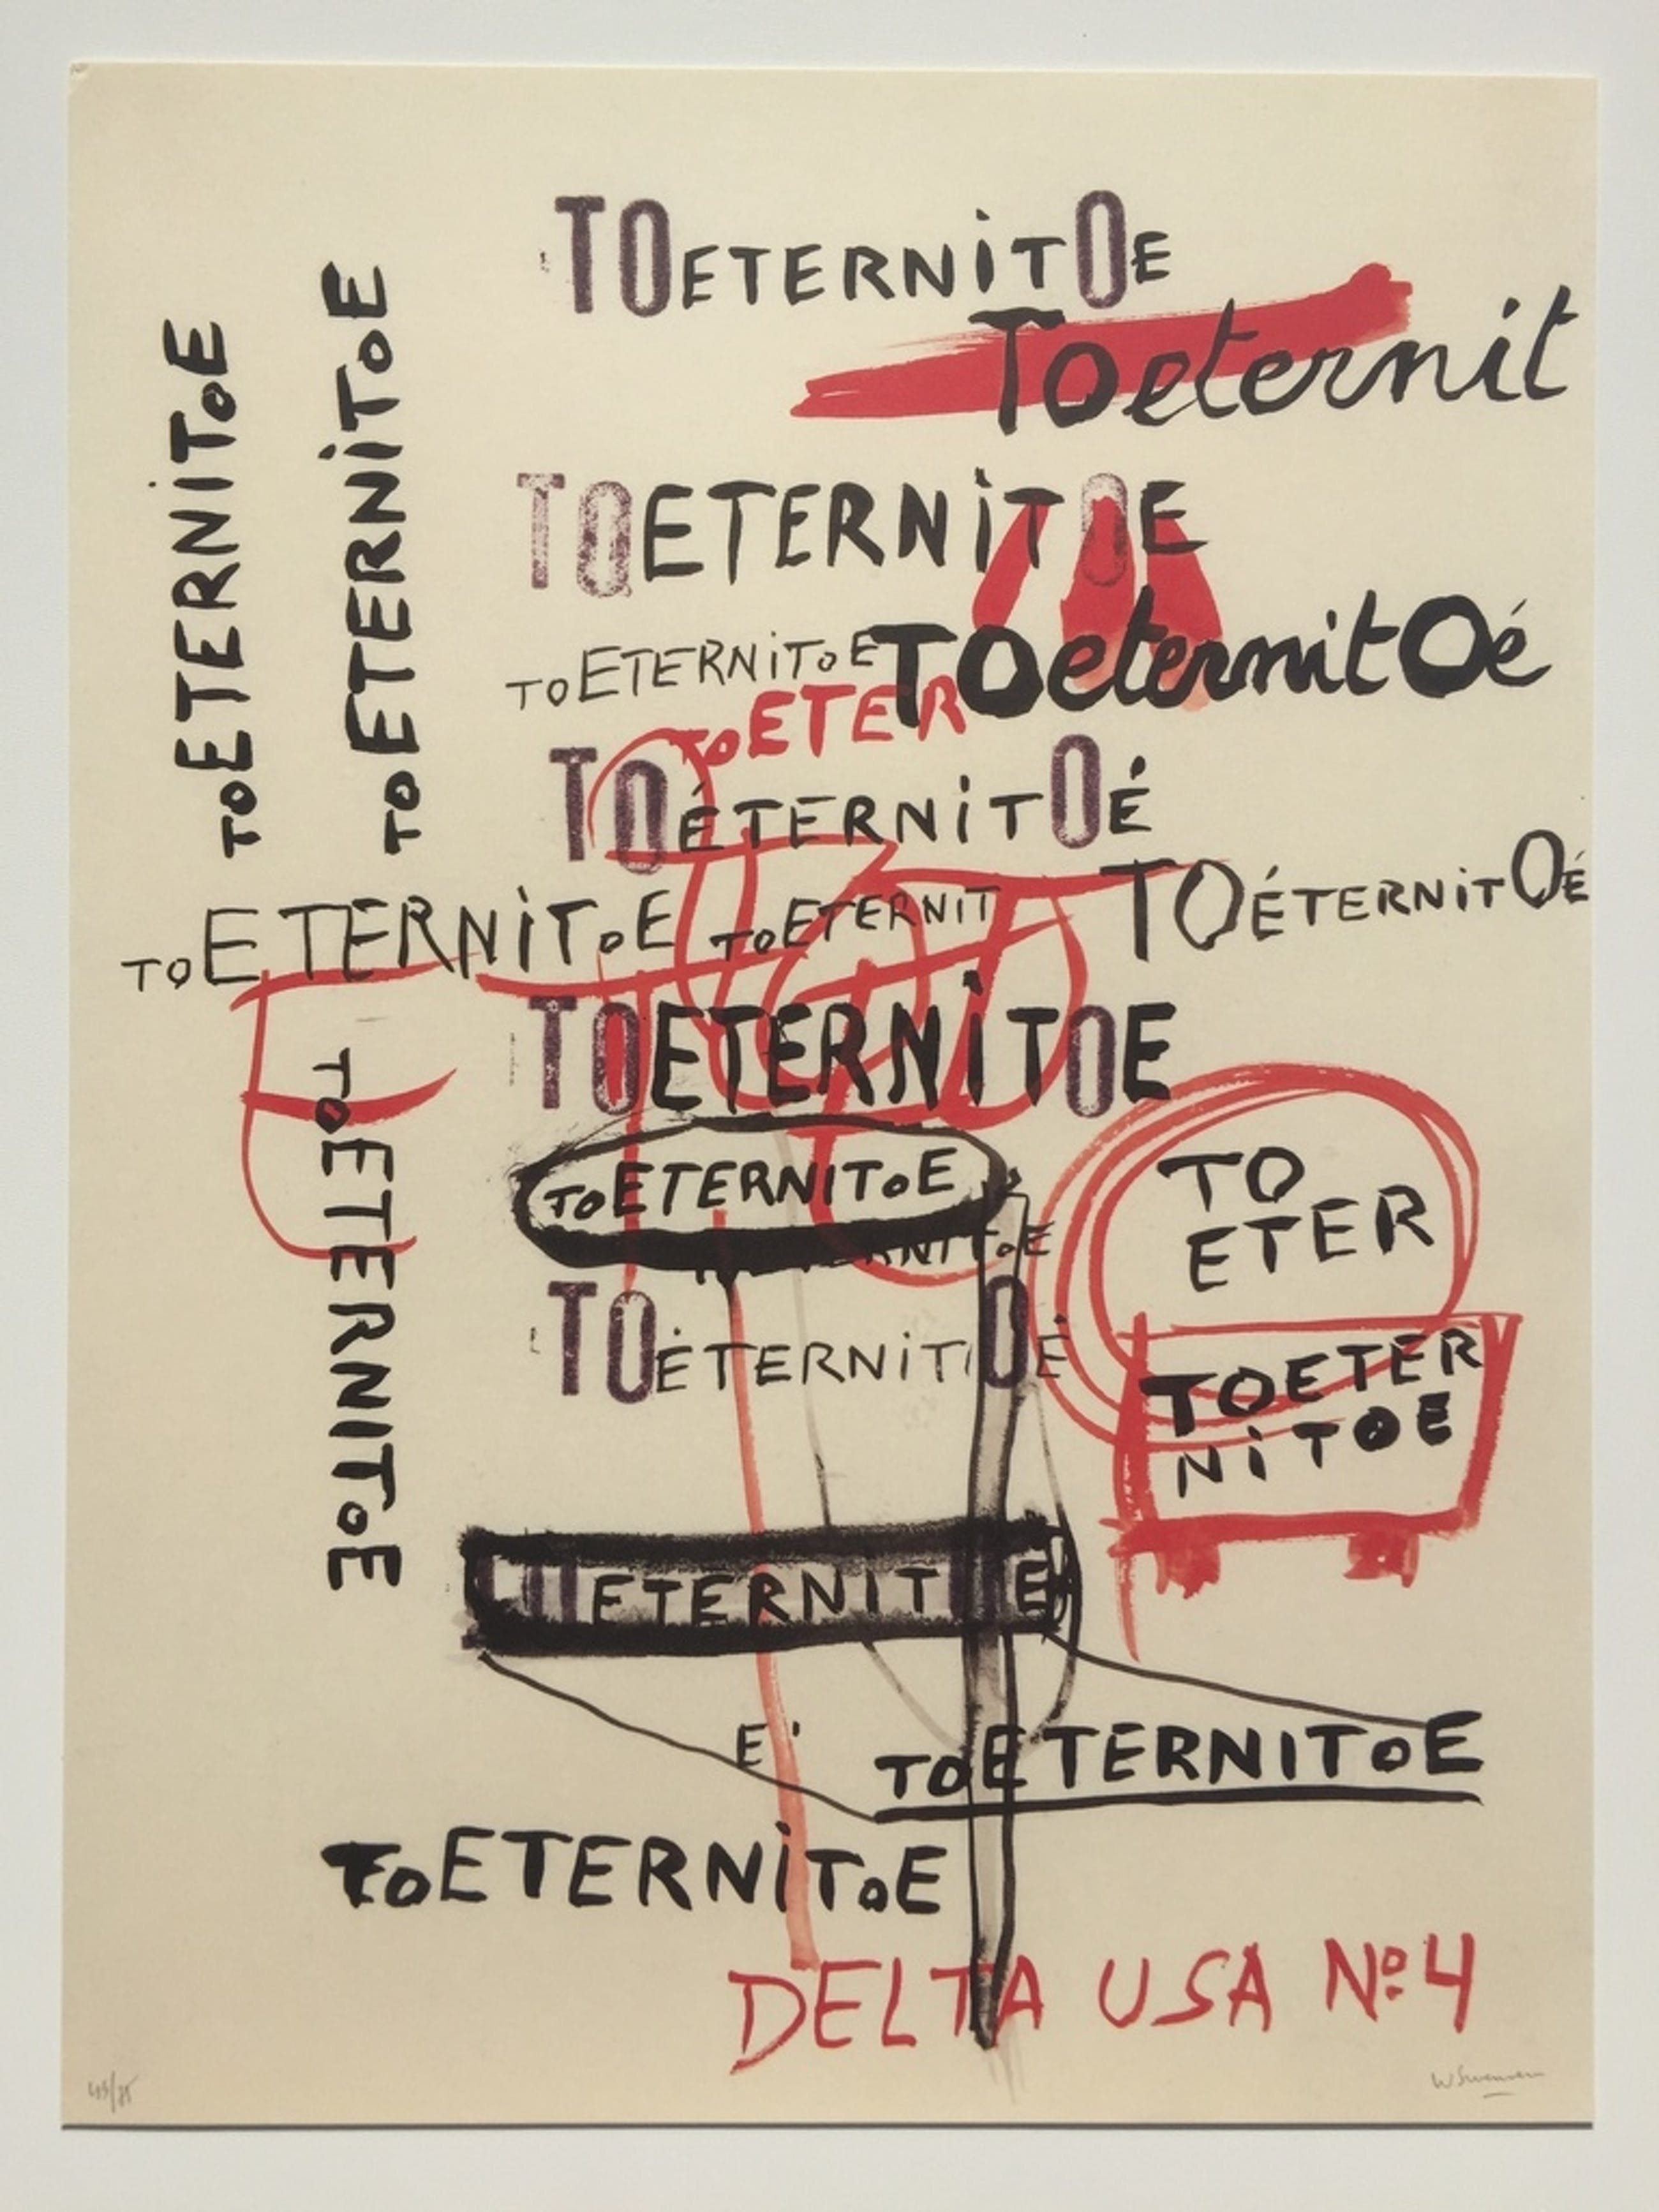 TOETERNiTOE
Toeternit
TOETERNiTOE
TOETERNiTOE
TOETERNiTOE
TOETERNiToE
TOeternitOé
TOETER
TOÉTERNiTOÉ
TOETERNiTOE
TOETERNIT
TOÉTERNiTOÉ
TOETERNiTOE
TOETERNITOE
TOETERNITOE
TO
ETER
TOÉTERNiTOÉ
TOETER
NiTOE
ETERNIT E
E'
TOETERNITOE
TOETERNiTOE
DELTA USA Nº4
W Swennen